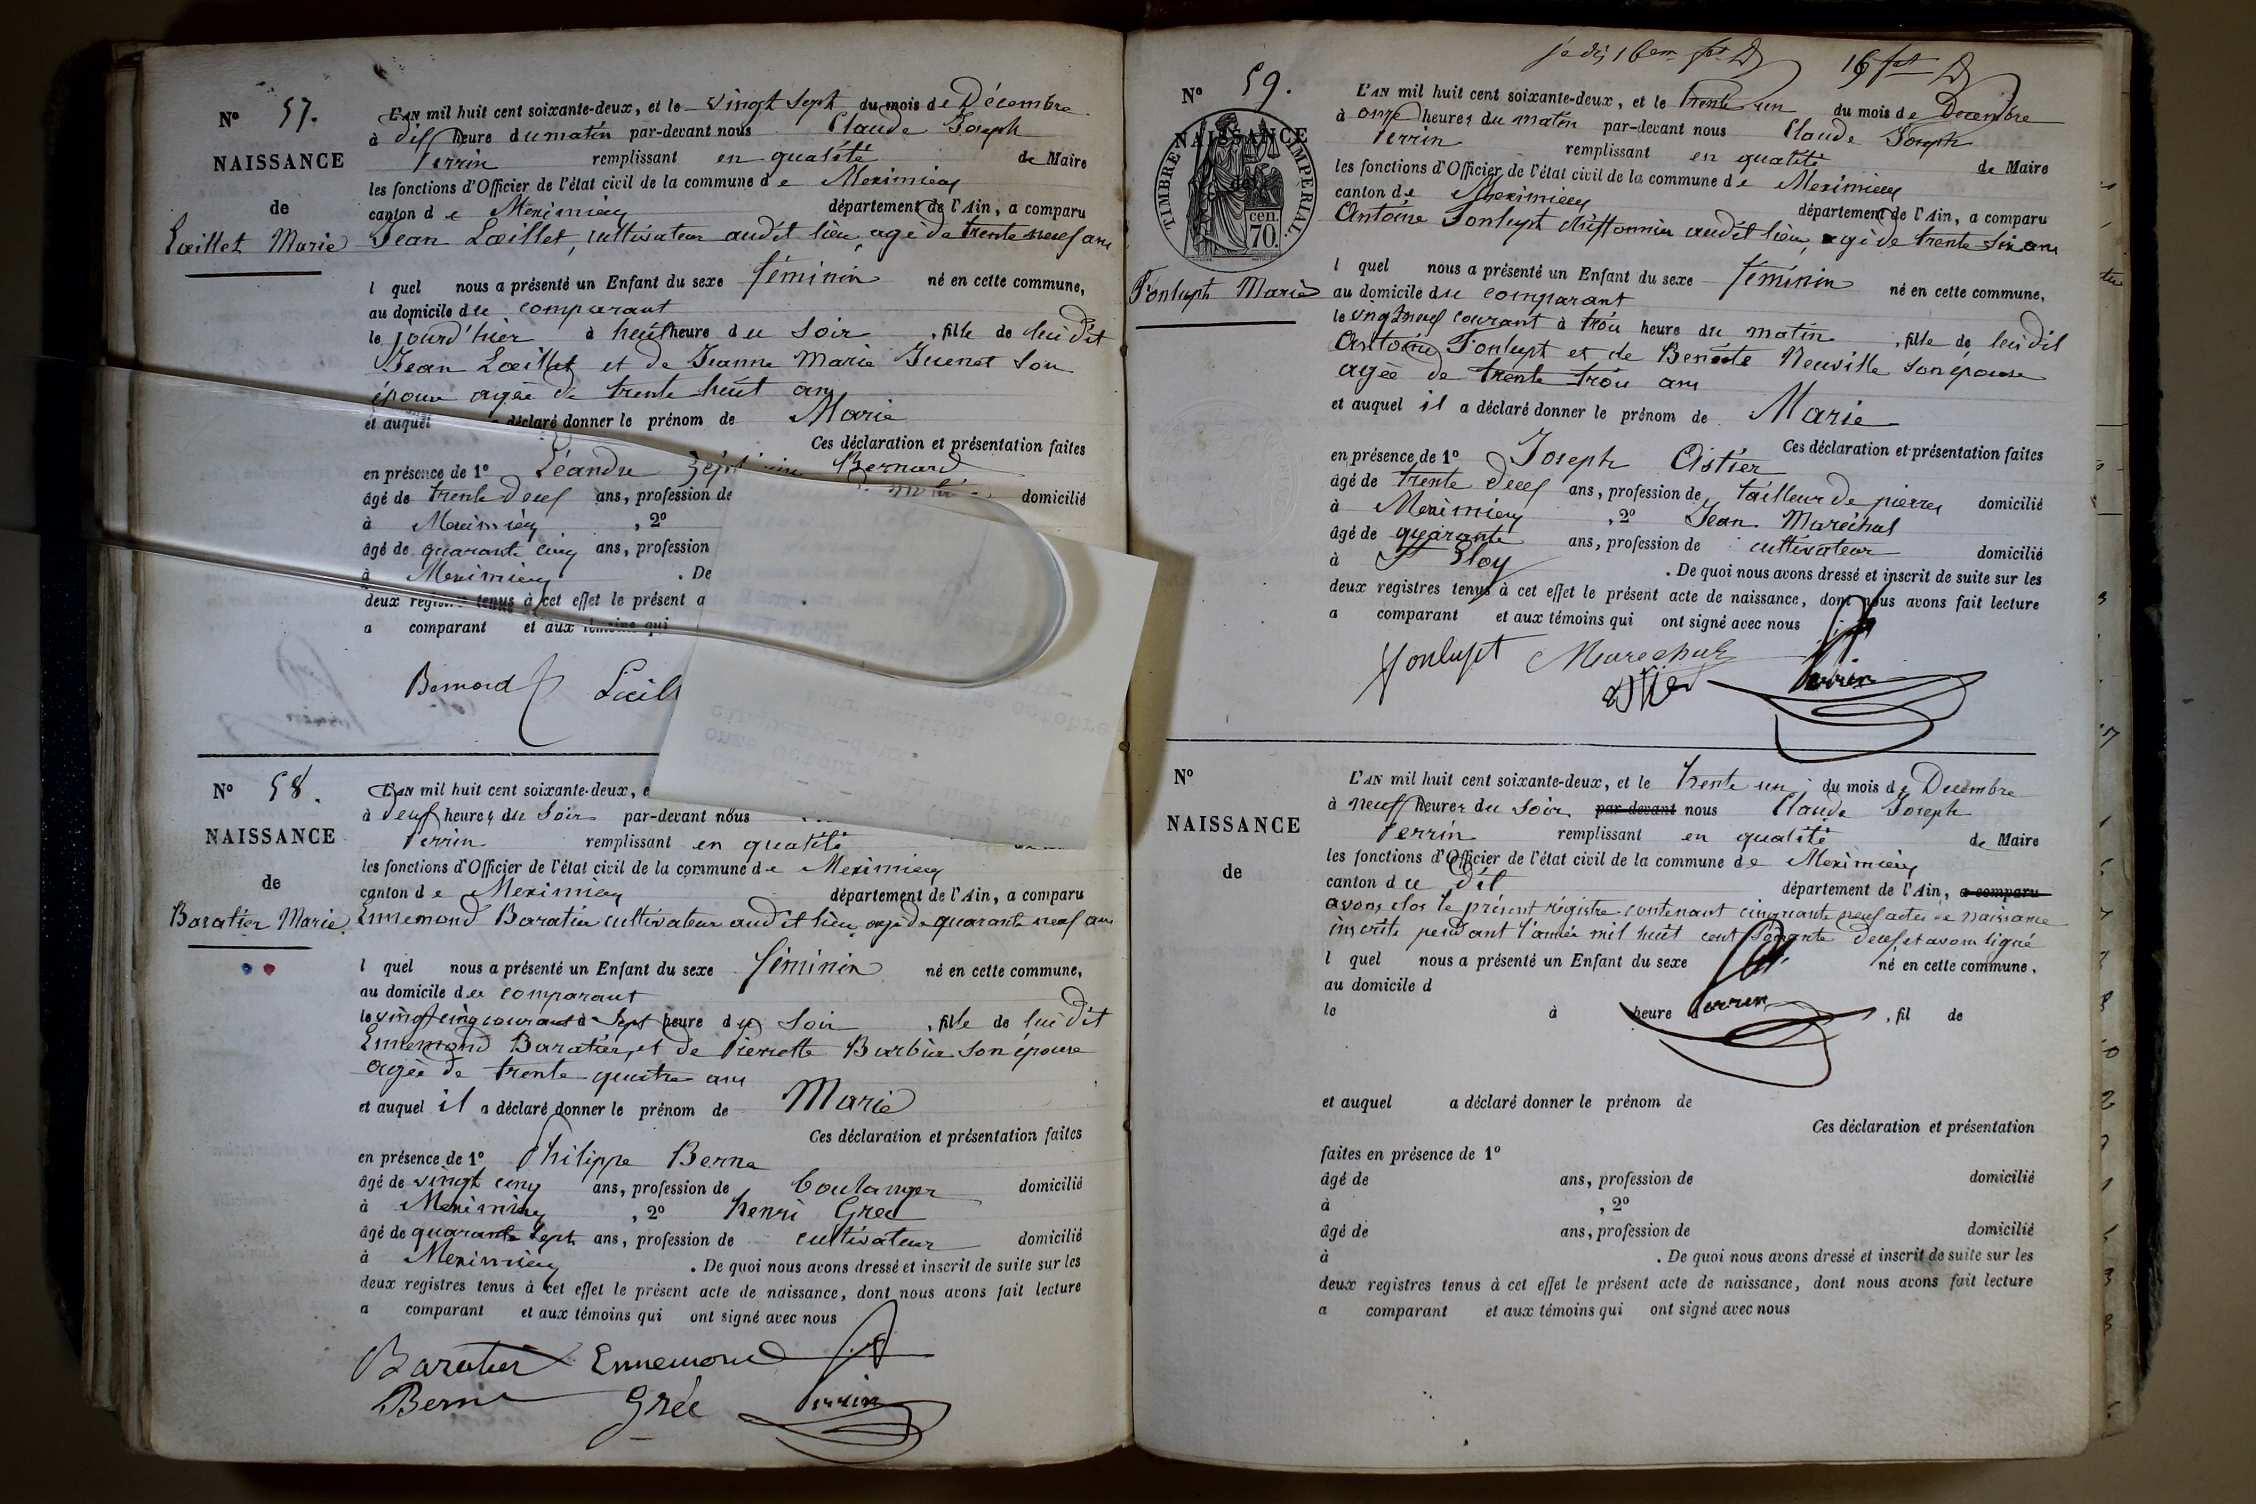 N° 57.
NAISSANCE
de
Lœillet Marie
L'AN mil huit cent soixante-deux, et le vingt sept du mois de Décembre
à dix heure du matin par-devant nous Claude Joseph
Perrin remplissant en qualité de Maire
les fonctions d'Officier de l'état civil de la commune de Meximieux
canton de Meximieux département de l'Ain, a comparu
Jean Lœillet, cultivateur audit lieu, agé de trente neuf ans
l quel nous a présenté un Enfant du sexe féminin né en cette commune,
au domicile du comparant
le jourd'hier à huit heure du soir, fille de lui dit
Jean Lœillet et de Jeanne Marie Juenet son
épouse agée de trente huit ans
et auquel déclaré donner le prénom de Marie
Ces déclaration et présentation faites
en présence de 1° Léandre Bernard
âgé de trente deux ans, profession de domicilié
à Meximieux, 2°
âgé de quarante cinq ans, profession
à Meximieux. De
deux registres tenus à cet effet le présent a
a comparant et aux témoins qui
Bernard Lœill
N° 58.
NAISSANCE
de
Baratier Marie
L'AN mil huit cent soixante-deux, e
à deux heures du soir par-devant nous
Perrin remplissant en qualité
les fonctions d'Officier de l'état civil de la commune de Meximieux
canton de Meximieux département de l'Ain, a comparu
Ennemond Baratier cultivateur audit lieu, agé de quarante neuf ans
l quel nous a présenté un Enfant du sexe féminin né en cette commune,
au domicile du comparant
le vingt cinq courant à sept heure du soir, fille de lui dit
Ennemond Baratier, et de Pierrette Barbier son épouse
agée de trente quatre ans
et auquel il a déclaré donner le prénom de Marie
Ces déclaration et présentation faites
en présence de 1° Philippe Berne
âgé de vingt cinq ans, profession de boulanger domicilié
à Meximieux, 2° henri Grée
âgé de quarante sept ans, profession de cultivateur domicilié
à Meximieux. De quoi nous avons dressé et inscrit de suite sur les
deux registres tenus à cet effet le présent acte de naissance, dont nous avons fait lecture
a comparant et aux témoins qui ont signé avec nous
Baratier Ennemond
Berne Grée Perrin
16
N° 59.
NAISSANCE
de
TIMBRE IMPÉRIAL
cen.
70.
Fonlupt Marie
L'AN mil huit cent soixante-deux, et le trente un du mois de Décembre
à onze heures du matin par-devant nous Claude Joseph
Perrin remplissant en qualité de Maire
les fonctions d'Officier de l'état civil de la commune de Meximieux
canton de Meximieux département de l'Ain, a comparu
Antoine Fonlupt chiffonnier audit lieu, agé de trente six ans
l quel nous a présenté un Enfant du sexe féminin né en cette commune,
au domicile du comparant
le vingt neuf courant à trois heure du matin, fille de lui dit
Antoine Fonlupt et de Benoite Neuville son épouse
agée de trente trois ans
et auquel il a déclaré donner le prénom de Marie
Ces déclaration et présentation faites
en présence de 1° Joseph Astier
âgé de trente deux ans, profession de tailleur de pierres domicilié
à Meximieux, 2° Jean Maréchal
âgé de quarante ans, profession de cultivateur domicilié
à St Eloy. De quoi nous avons dressé et inscrit de suite sur les
deux registres tenus à cet effet le présent acte de naissance, dont nous avons fait lecture
a comparant et aux témoins qui ont signé avec nous
fonlupt Marechal
astier Perrin
N°
NAISSANCE
de
L'AN mil huit cent soixante-deux, et le trente un du mois de Décembre
à neuf heures du soir par-devant nous Claude Joseph
Perrin remplissant en qualité de Maire
les fonctions d'Officier de l'état civil de la commune de Meximieux
canton du dit département de l'Ain, a comparu
avons clos le présent régistre contenant cinquante neuf actes de naissance
inscrits pendant l'année mil huit cent soixante deux et avons signé
l quel nous a présenté un Enfant du sexe né en cette commune,
au domicile d
le à heure Perrin, fil de
et auquel a déclaré donner le prénom de
Ces déclaration et présentation
faites en présence de 1°
âgé de ans, profession de domicilié
à , 2°
âgé de ans, profession de domicilié
à . De quoi nous avons dressé et inscrit de suite sur les
deux registres tenus à cet effet le présent acte de naissance, dont nous avons fait lecture
a comparant et aux témoins qui ont signé avec nous